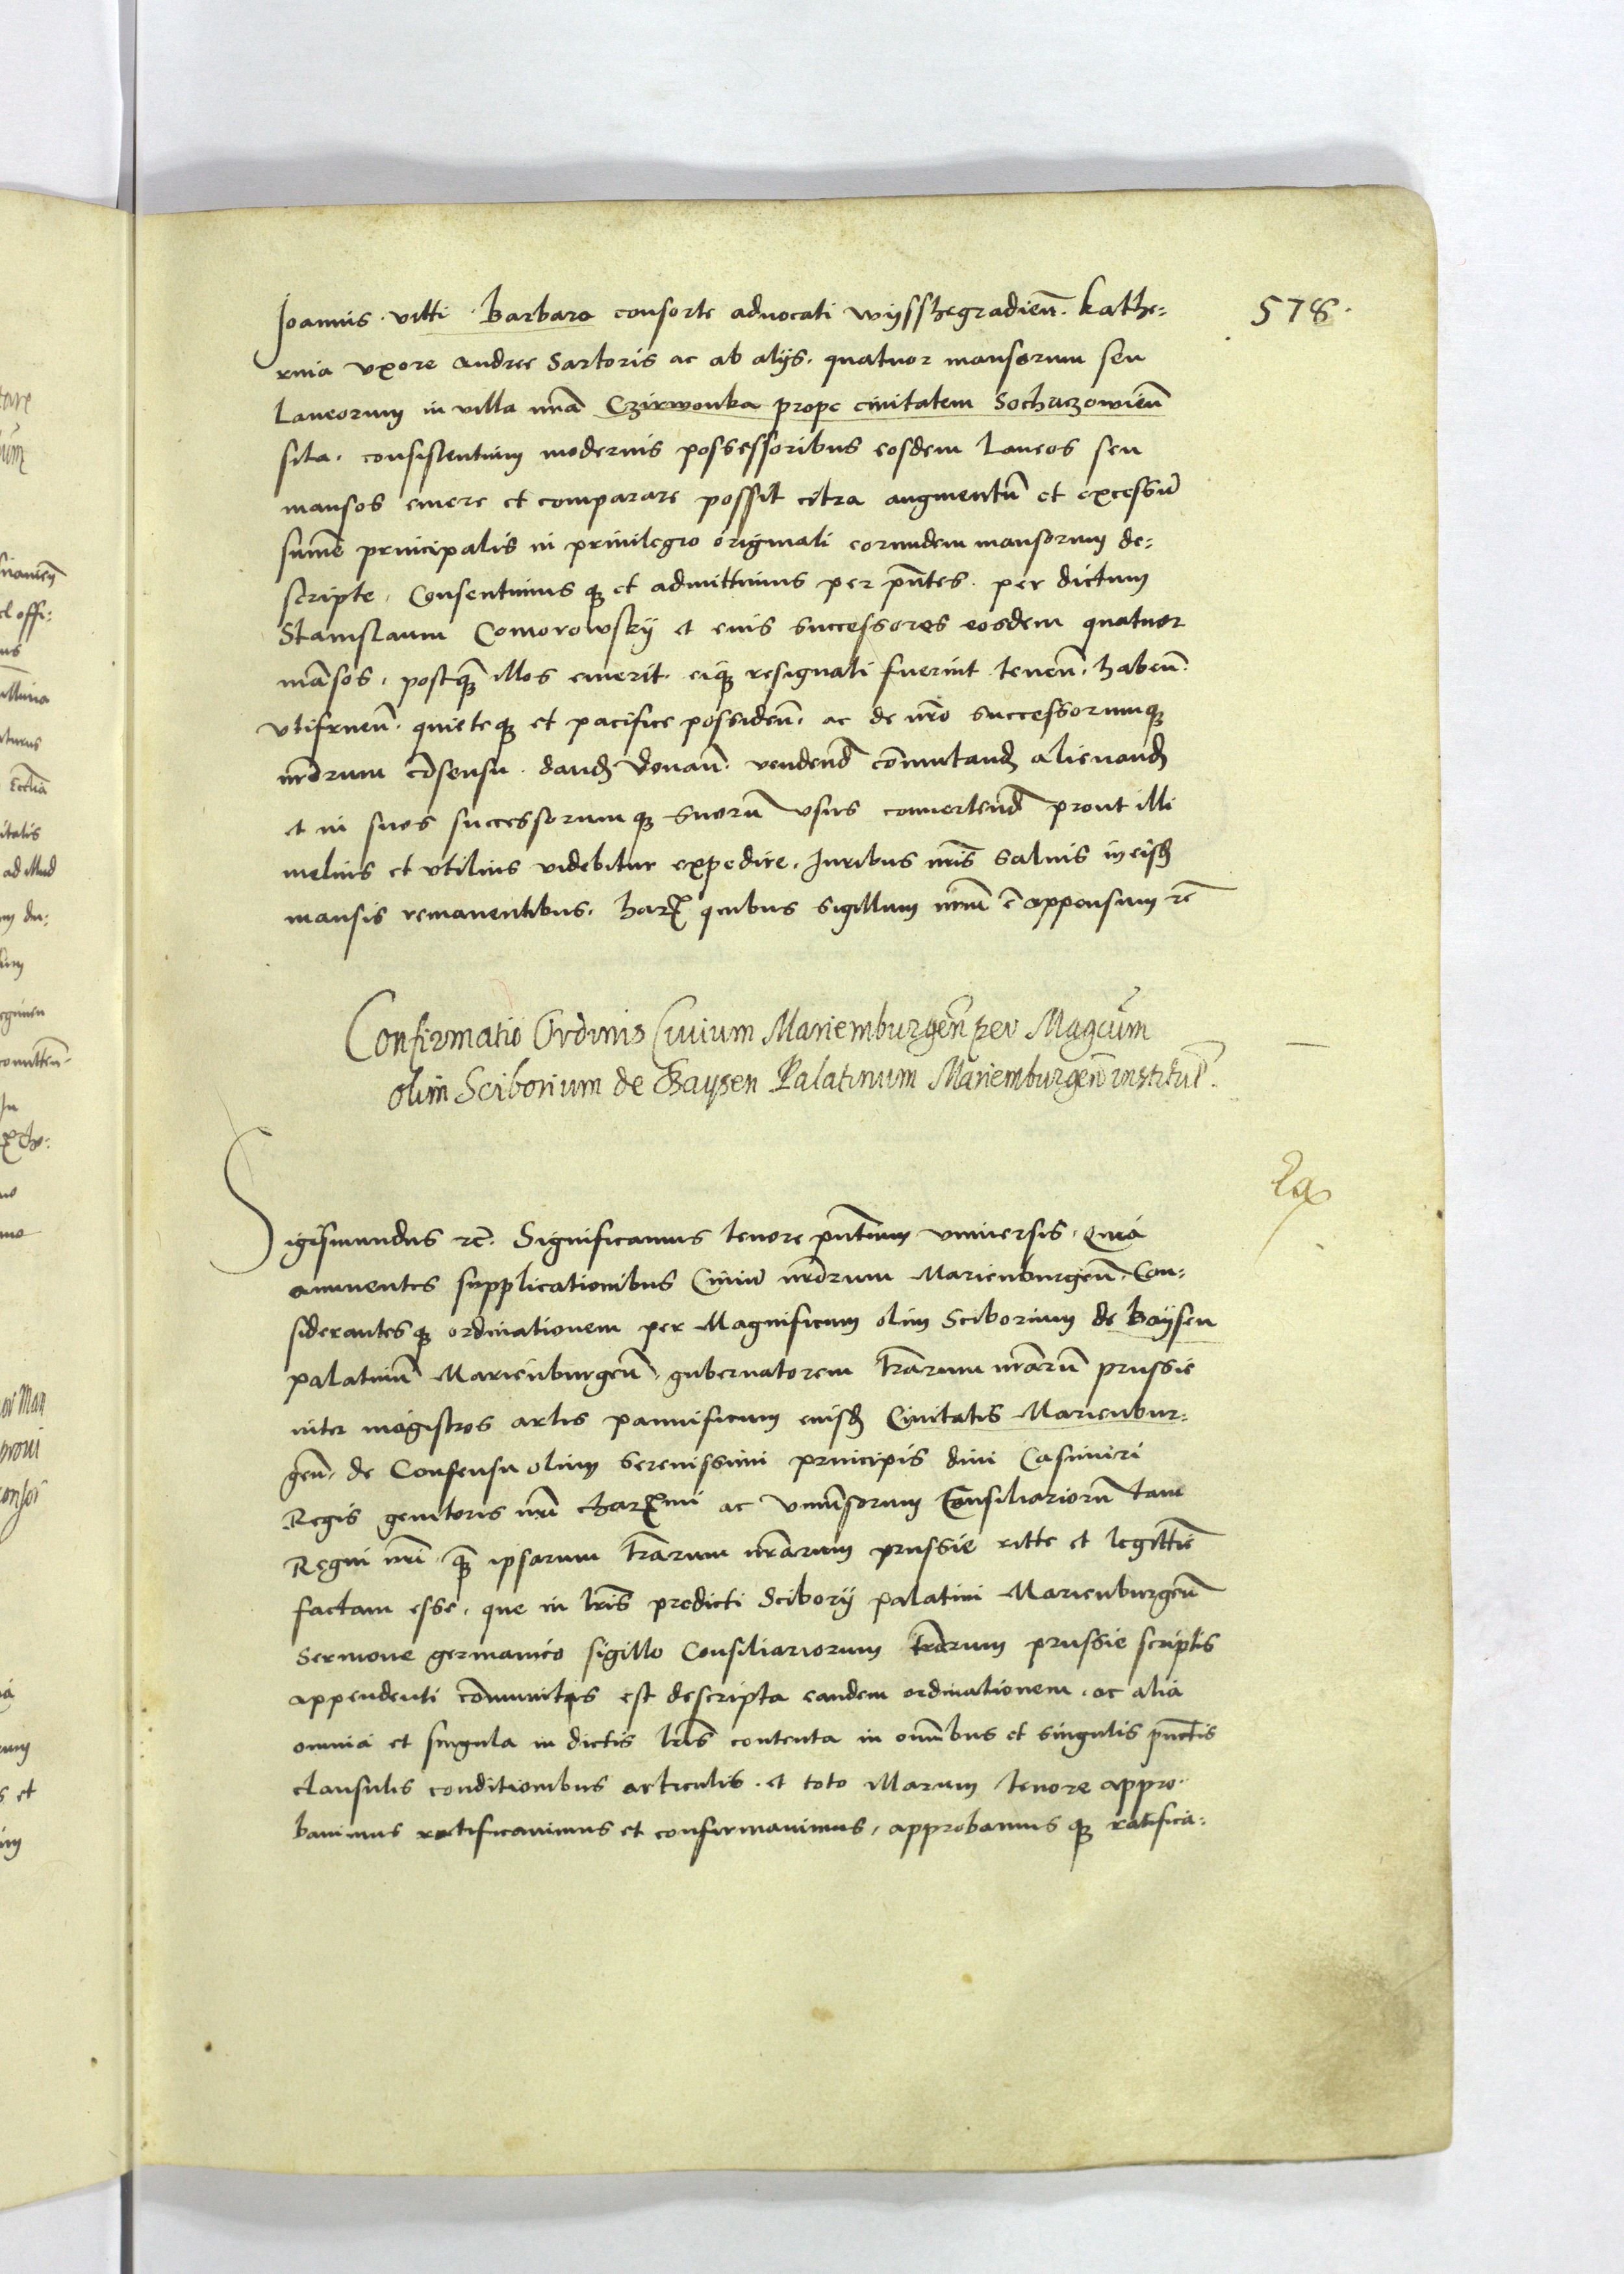 578.
Joannis vitti Barbara consorte advocati wyssħegradien̄. kathe-
rina vxore Andree Sartoris ac ab alijs. quatuor mansorum seu
Laneorum in villa nr̄a Czirwonka prope civitatem Sochaczowien̄
sita. consistentium modernis possessoribus eosdem laneos seu
mansos emere et comparare possit citra augmentū et excessū
sum̄e principalis in privilegio originali eorundem mansorum de-
scripte. Consentimus qȝ et admittimus per pn̄tes. per dictum
Stanislaum Comorowskÿ et eius successores eosdem quatuor
māsos. postqȝ illos emerit. eiqȝ resignati fuerint tenen̄. haben̄.
vtifruen̄. quieteqȝ et pacifice possiden̄. ac de nr̄o successorumqȝ
nr̄orum cōsensu. dand donan̄. vendend cōmutand alienand
et in suos successorumqȝ suorū vsus convertend prout illi
melius et vtilius videbitur expedire. Juribus nr̄is salvis in eisd
mansis remanentibus. harꝝ quibus sigillum nr̄um ē appensum rc̄
Confirmatio Ordinis Civium Mariemburgen̄ per Magcūm
olim Sciborium de Baysen Palatinum Mariemburgen̄ institut̄.
Sigismundus rc̄. Significamus tenore pn̄tium vniversis. Quia
annuentes supplicationibus Civiū nr̄orum Marienburgen̄. Con-
siderantesqȝ ordinationem per Magnificum olim Sciborium de Baÿsen
palatinū Marienburgen̄. gubernatorem tr̄arum nr̄arū prussie
inter magistros artis pannificum eiusd Civitatis Marienbur-
gen̄. de Consensu olim Serenissimi principis divi Casimiri
Regis genitoris nr̄i charꝝmi ac vniv̄sorum Consiliariorū tam
Regni nr̄i qȝ ipsarum tr̄arum nr̄arum prussie ritte et legittīe
factam esse. que in lr̄is predicti Sciborij palatini Marienburgen̄
Sermone germanico sigillo Consiliariorum tr̄arum prussie scriptis
appendenti cōmunitis est descripta eandem ordinationem. ac alia
omnia et singula in dictis lr̄is contenta in om̄ibus et singulis punctis
clausulis conditionibus articulis. et toto illarum tenore appro-
bavimus ratificavimus et confirmavimus. approbamusqȝ ratifica-